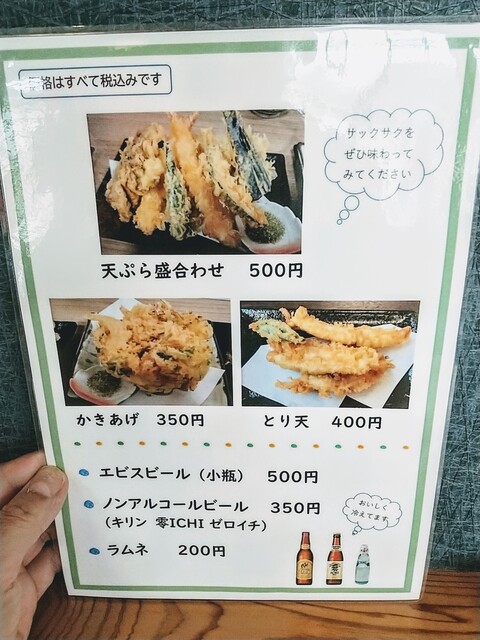 価格はすべて税込みです
サックサクを
ぜひ味わって
みてください
天ぷら盛合わせ 500円
かきあげ 350円
とり天 400円
エビスビール（小瓶） 500円
ノンアルコールビール 350円
（キリン 零ICHI ゼロイチ）
おいしく
冷えてます
ラムネ 200円